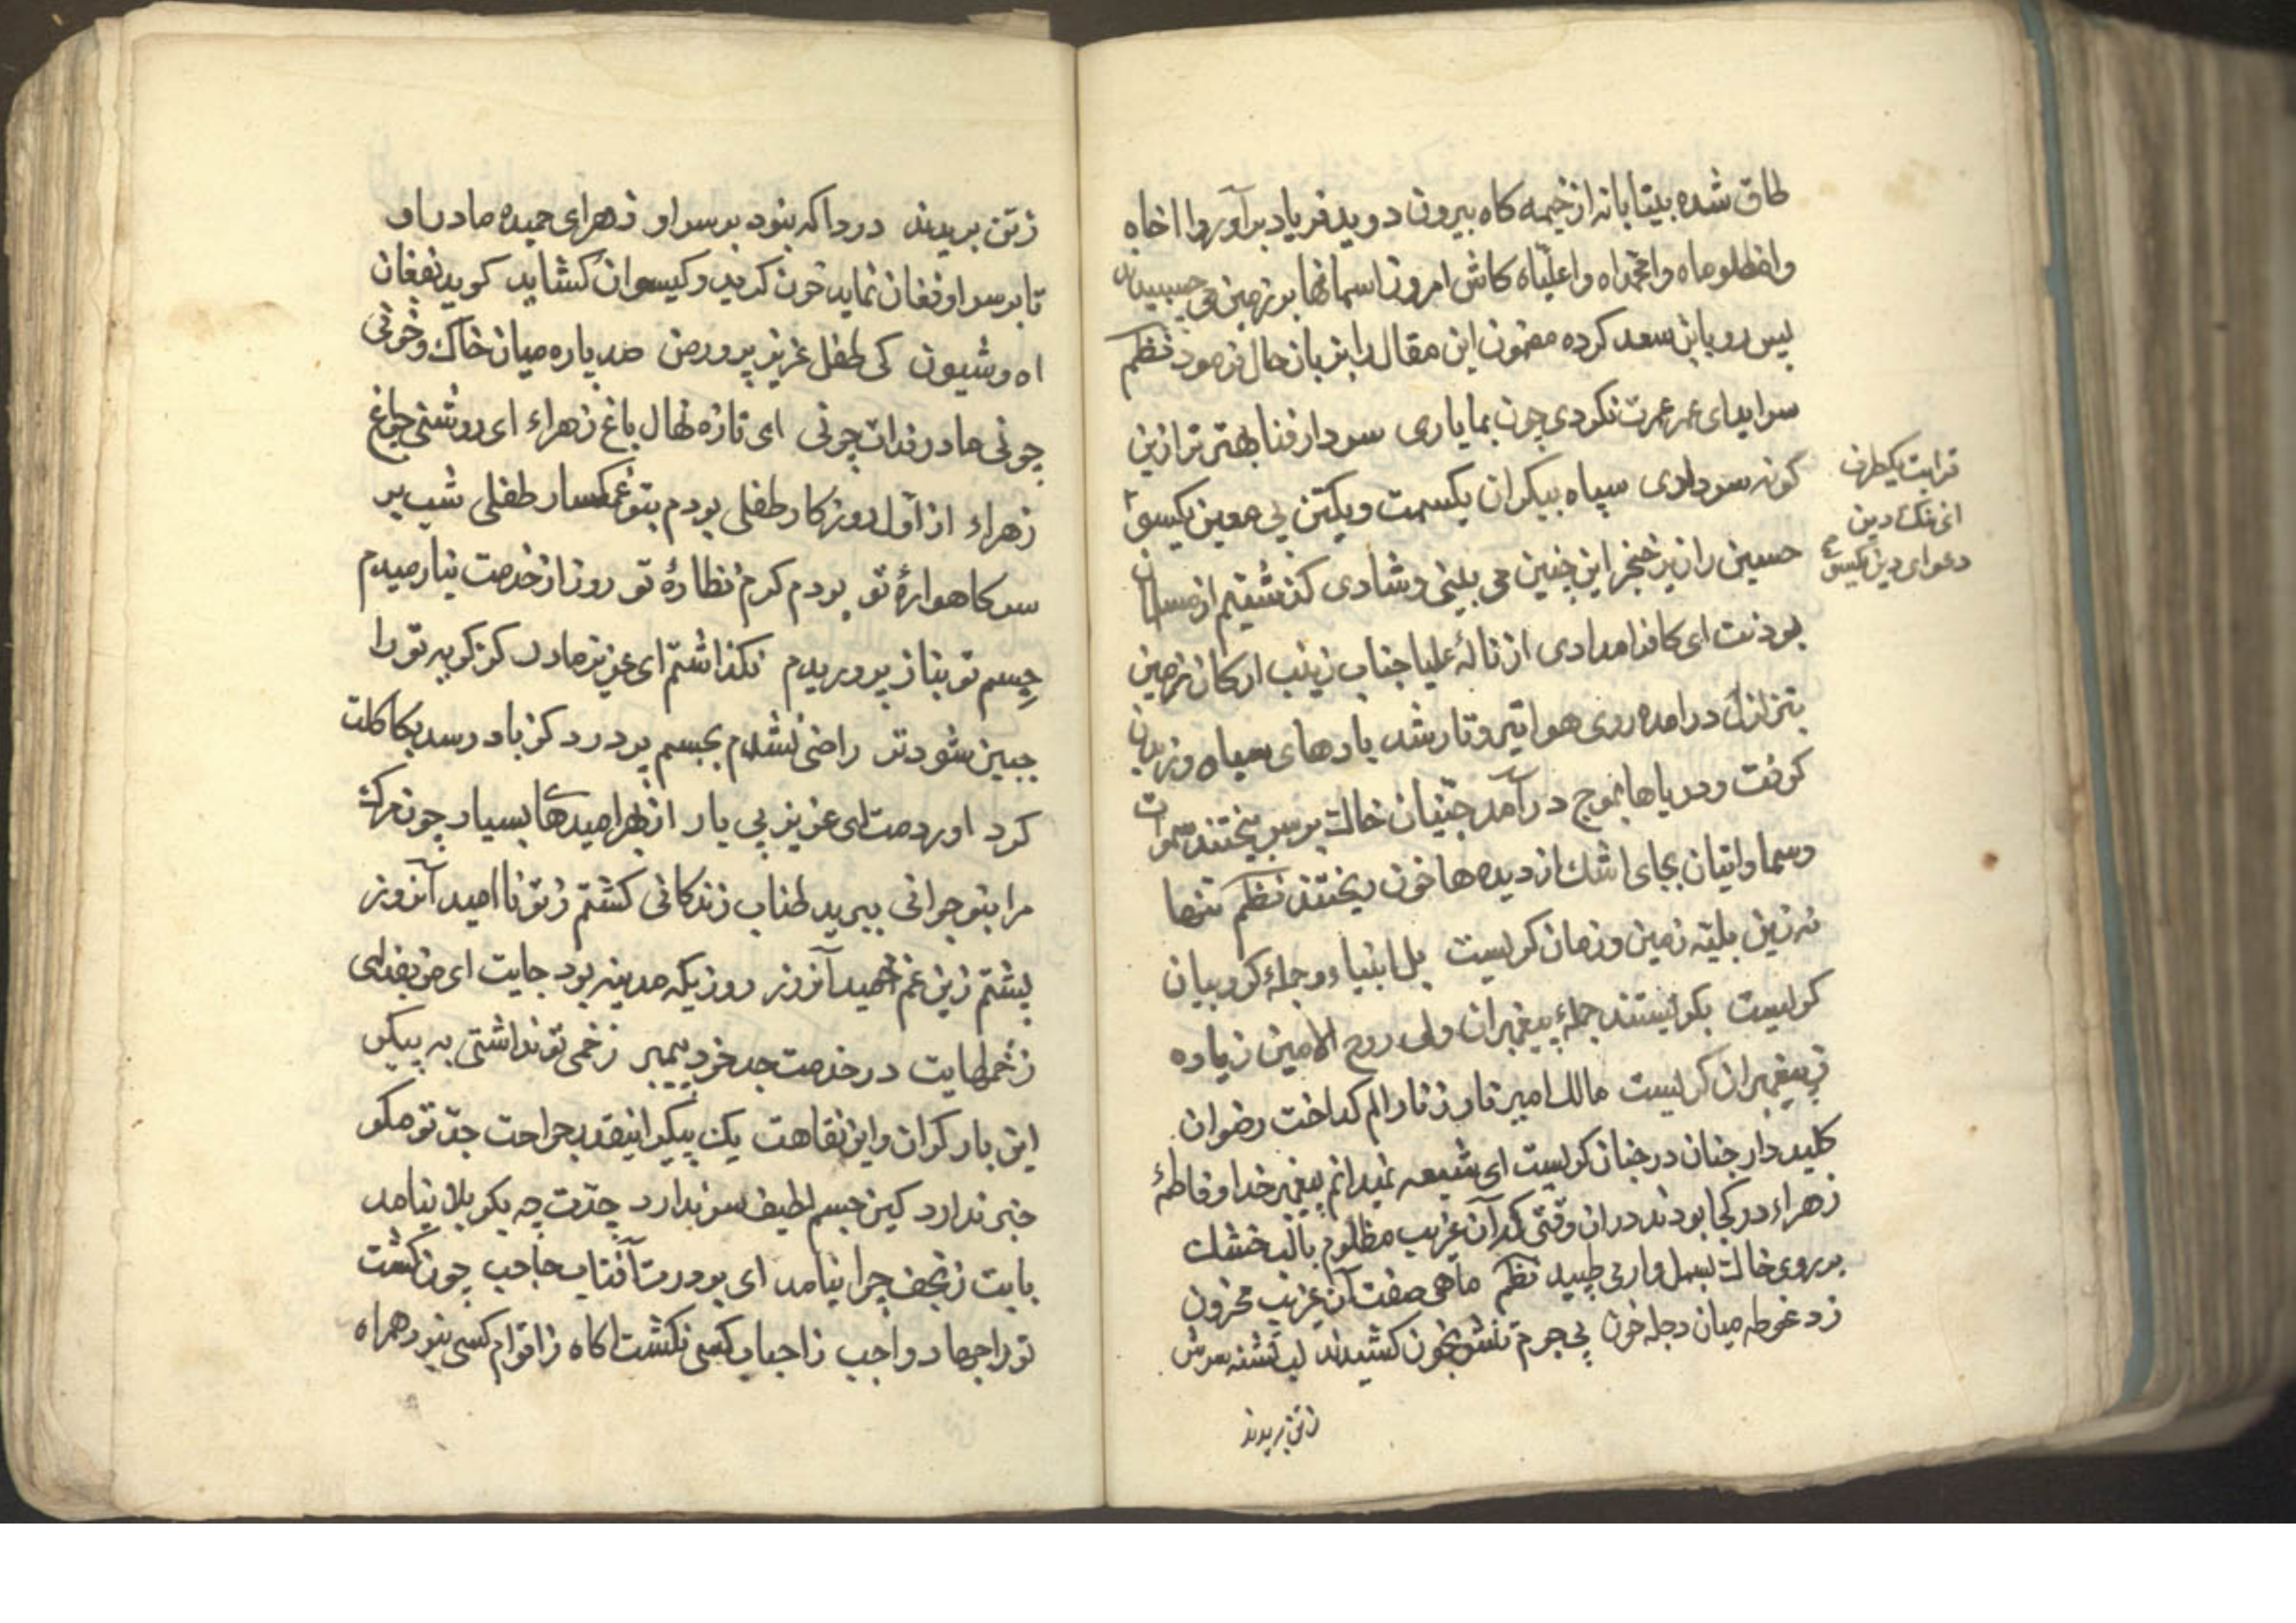 طاق شده بیتابانه از خیمه کاه بیرون دوید فریاد برآورد وا اخاه
وا مظلوماه وا محمداه وا علیاه کاش امروز اسمانها بر زمین می چسبیدند
پس رو بابن سعد کرده مضمون این مقال را بزبان حال فرمود نظم
سرابیدای عمر عمرت نکردی چون بما یاری سر دار فنا بهتر ترا زین
کونه سرداری سپاه بیکران یکسمت و یکتن بی معین یکسو
حسین را زیر خنجر این چنین می بینی و شادی کذشتیم از مسلمان
بودنت ای کافر امدادی از نالهٔ علیا جناب زینب ارکان زمین
بتزلزل درامده روی هوا تیره و تار شد بادهای سیاه وزیدن
کرفت و دریاها بموج درآمد جنیان خاک بر سر ریختند سموات
وسماواتیان بجای اشک از دیده ها خون ریختند نظم تنها
نه زین بلیه زمین و زمان کریست بل انبیاء و جملهٔ کروبیان
کریست بکریستند جملهٔ پیغمبران ولی روح الامین زیاده
ز پیغمبران کریست مالک امیر نار ز نار الم کداخت رضوان
کلید دار جنان در جنان کریست ای شیعه نمیدانم پیغمبر خدا و فاطمهٔ
زهراء در کجا بودند دران وقتی که آن غریب مظلوم بالب خشک
بر روی خاک بسمل وار می طپید نظم ماهی صفت آن غریب محزون
زد غوطه میان دجله خون بی جرم تنش بخون کشیدند لب تشنه سرش
زتن بریدند
قرابت یکطرف
ای ننک دین
دعوای دین یکسو
زتن بریدند دردا که نبود بر سر او زهرای حمیده مادر او
تا بر سر او فغان نماید خون کرید و کیسوان کشاید کوید بفغان
اه و شیون کی طفل عزیز پرور من صد پاره میان خاک و خونی
چونی مادر فدات چونی ای تازه نهال باغ زهراء ای روشنی چراغ
زهراء از اول روزکار طفلی بودم بتو غمکسار طفلی شب بر
سر کاهوارهٔ تو بودم کرم نظارهٔ تو روز از خدمت نیارمیدم
جسم تو بناز پروریدم نکذاشتم ای عزیز مادر کز کریه تو را
جبین شود تر راضی نشدم بجسم پر درد کز باد رسد بکاکلت
کرد اوردمت ای عزیز بی یار از بهر امیدها بسیار چون مرک
مرا بنوجوانی ببرید طناب زندکانی کشتم ز تو نا امید آنروز
پشتم زین غم خمید آنروز روزیکه مدینه بود جایت ای من بفدای
زخمهایت در خدمت جد خود پیمبر زخمی تو نداشتی به پیکر
این بار کران و این نقاهت یک پیکر اینقدر جراحت جد تو مکر
خبر ندارد کین جسم لطیف سر ندارد جدت چه بکربلا نیامد
بابت ز نجف چرا نیامد ای بر درت آفتاب حاجب چون کشت
تو را جهاد واجب ز احباب کسی نکشت اکاه ز اقوام کسی نبود همراه